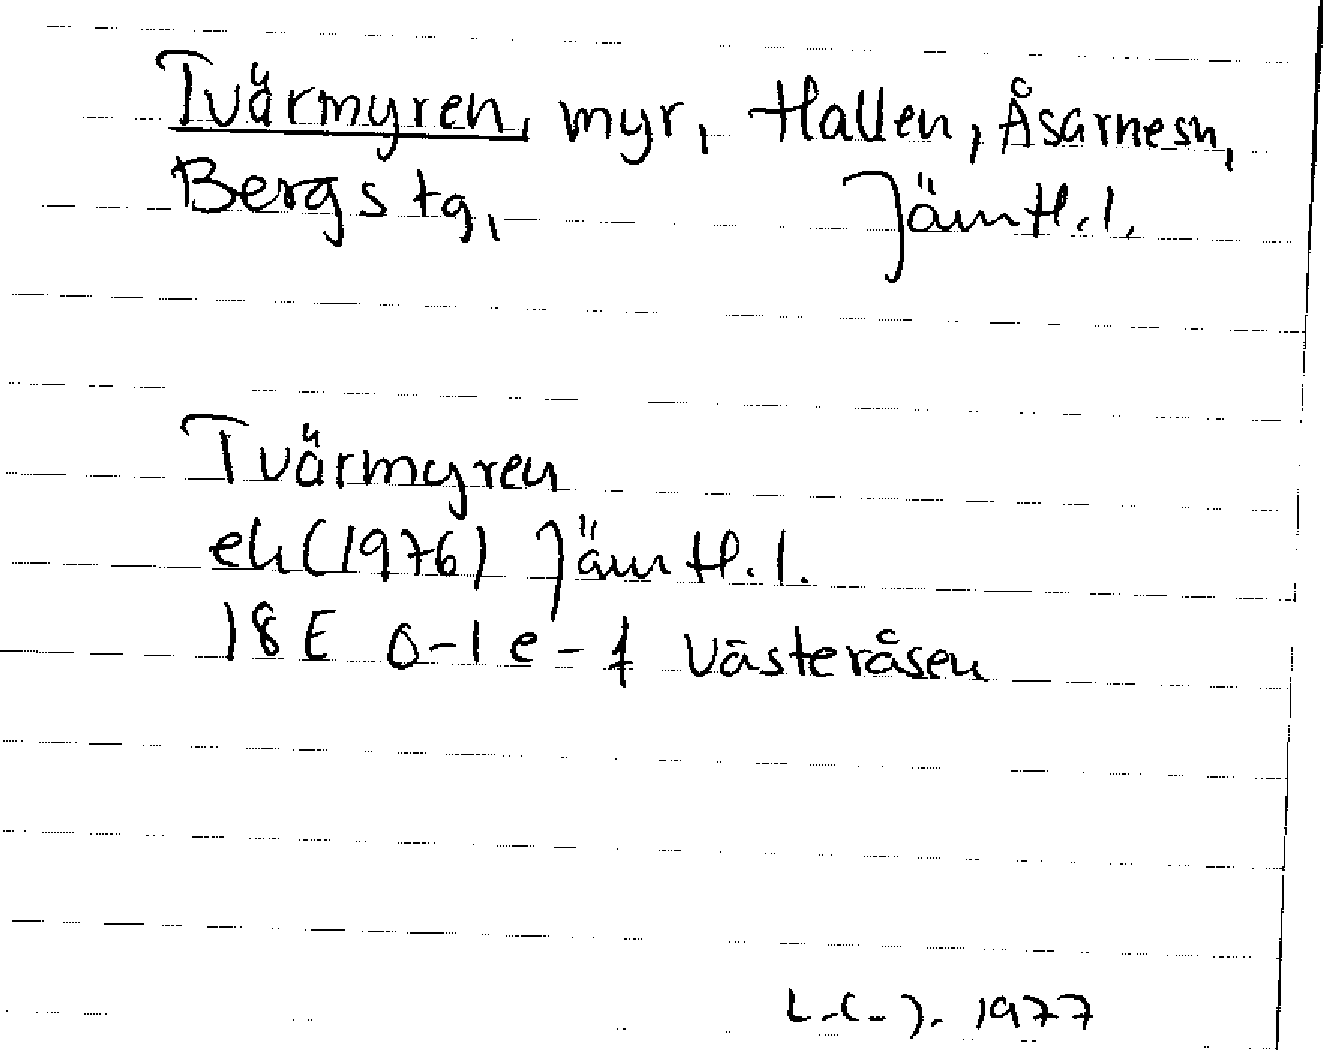 Tvärmyren, myr, Hallen, Åsarnesn,
Bergs tg, Jämtl.l.
Tvärmyren
ek (1976) Jämtl.l.
18E 0-1 e-f Västeråsen
1977